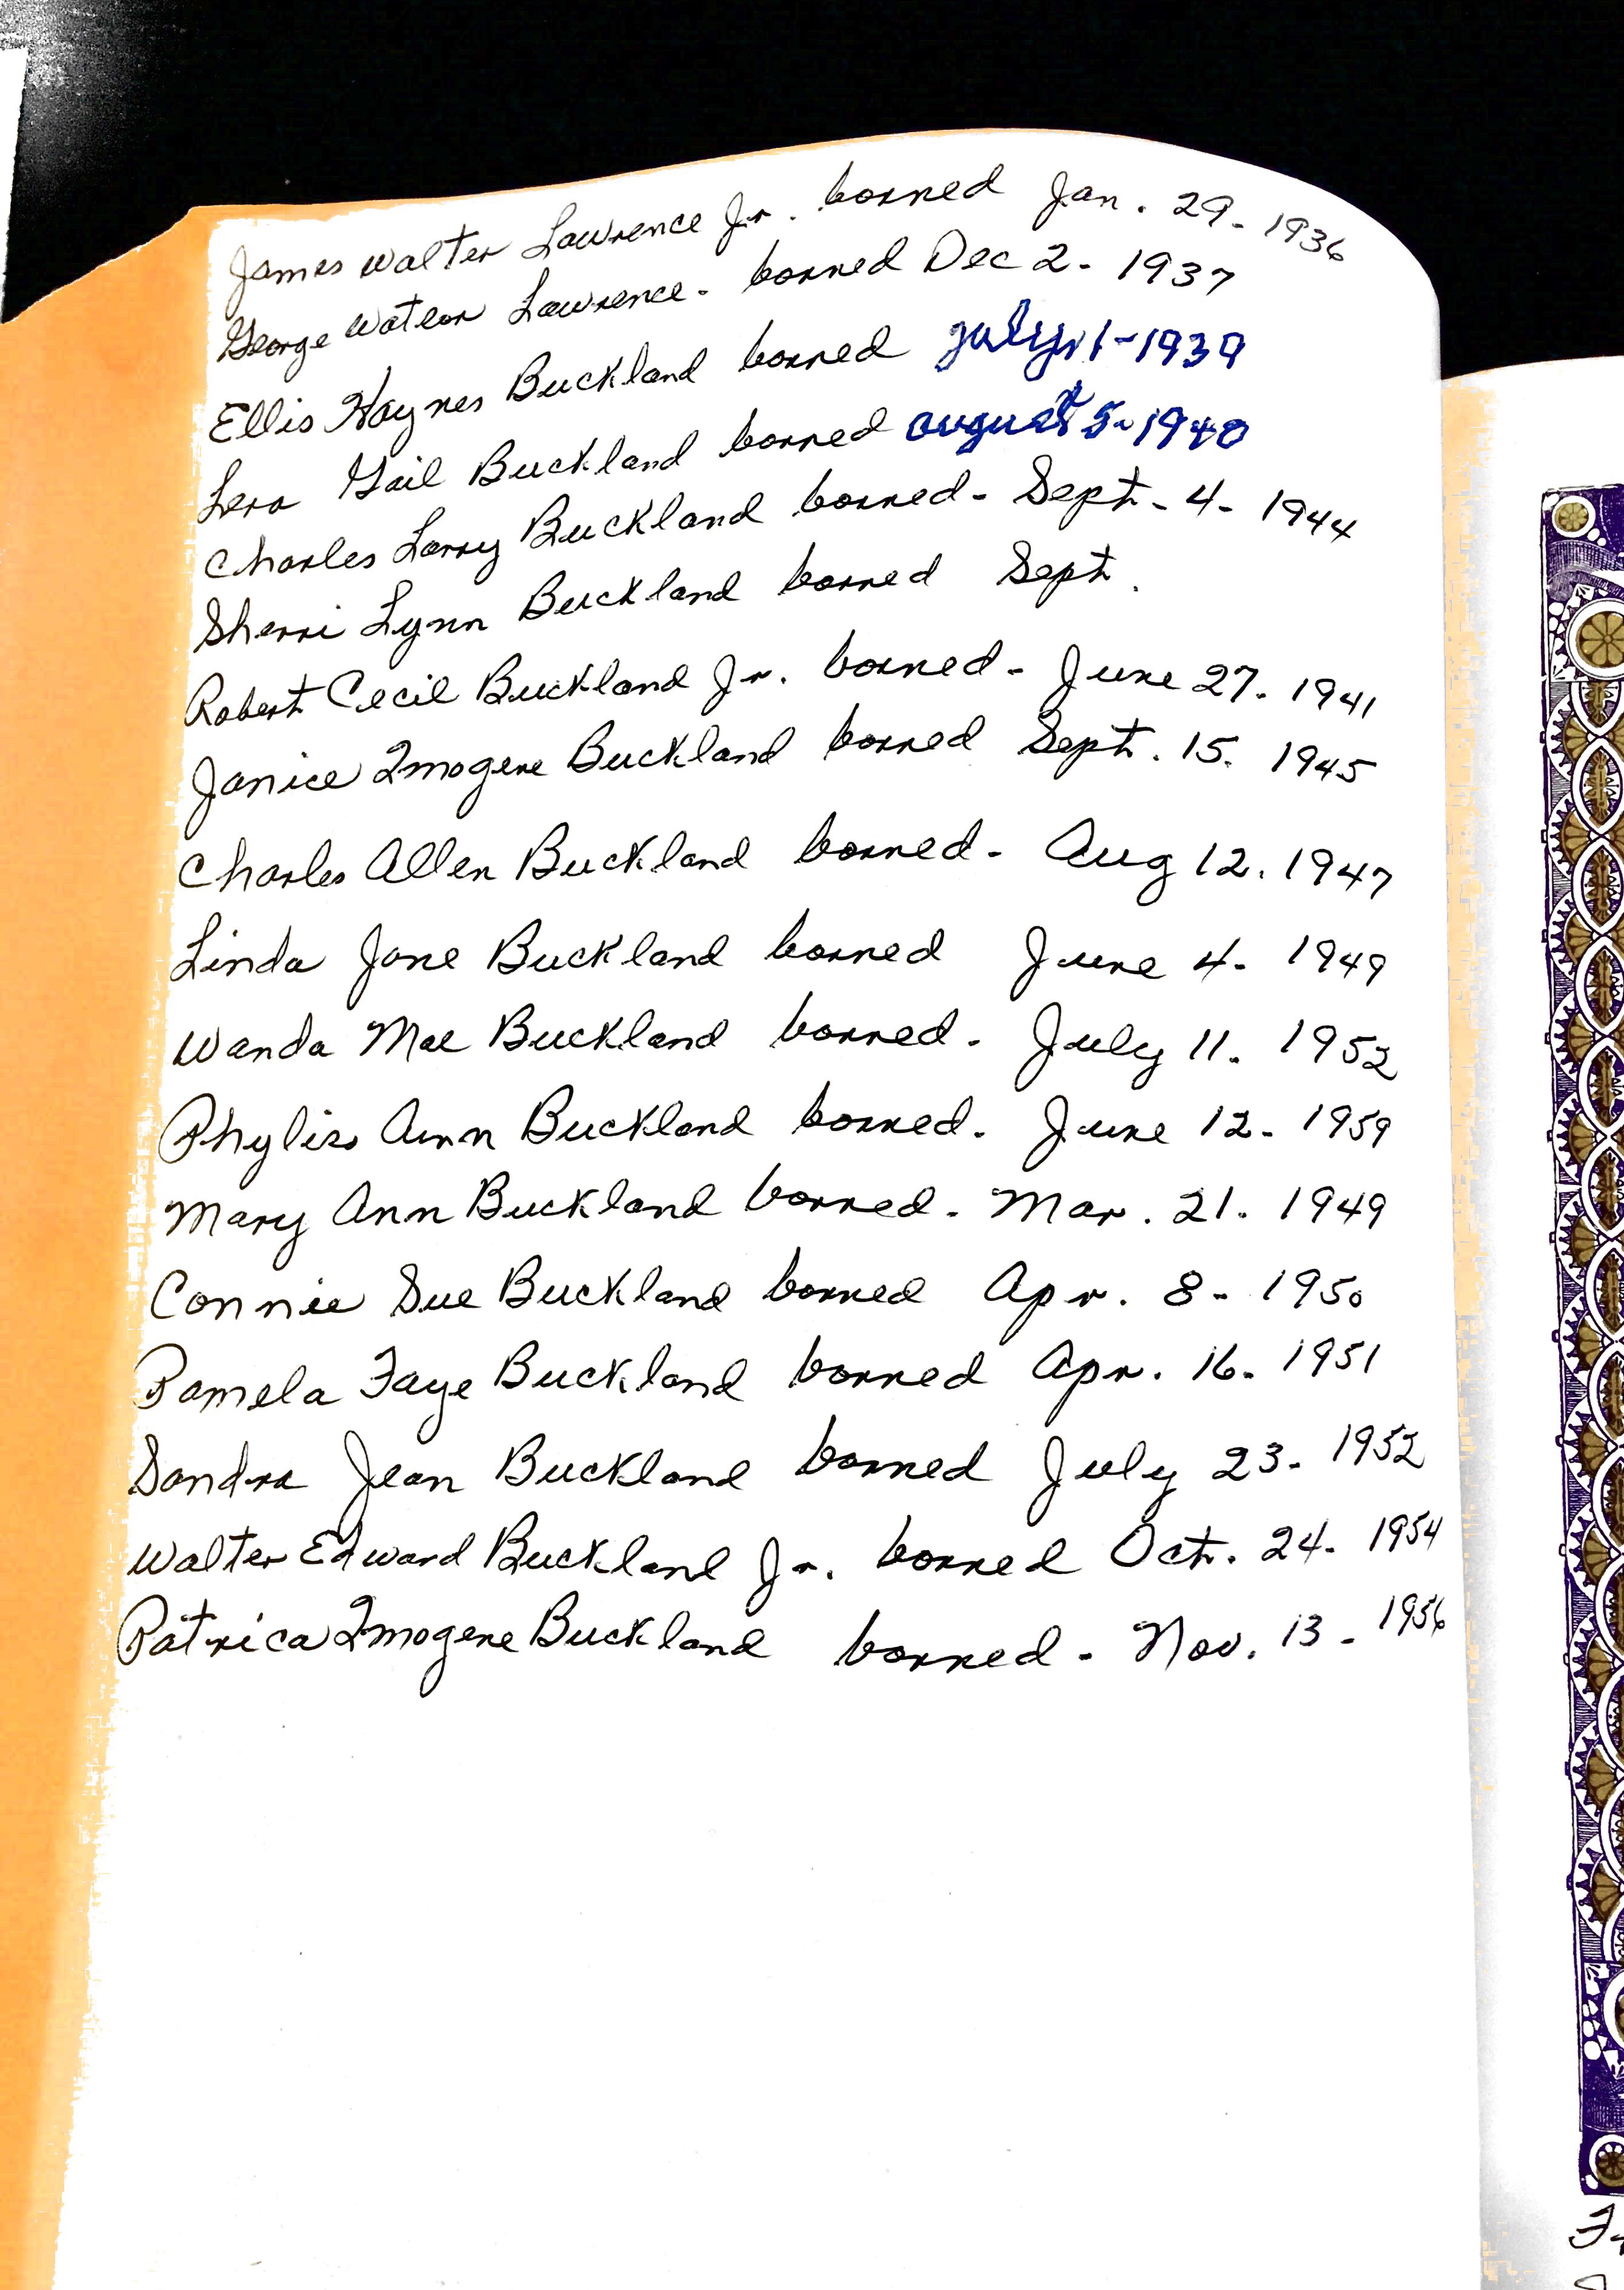 James Walter Lawrence Jr. borned Jan. 29- 1936
George Watson Lawrence- borned Dec 2- 1937
Ellis Haynes Buckland borned July 1-1939
Lera Gail Buckland borned august 5-1940
Charles Larry Buckland borned- Sept- 4- 1944
Sherri Lynn Buckland borned Sept.
Robert Cecil Buckland Jr. borned- June 27- 1941
Janice Imogene Buckland borned Sept. 15. 1945
Charles Allen Buckland borned- Aug 12. 1947
Linda Jane Buckland borned June 4- 1949
Wanda Mae Buckland borned- July 11. 1952
Phyliss Ann Buckland borned- June 12- 1959
Mary Ann Buckland borned- Mar. 21. 1949
Connie Sue Buckland borned Apr. 8- 1950
Pamela Faye Buckland borned Apr. 16- 1951
Sandra Jean Buckland borned July 23- 1952
Walter Edward Buckland Jr. borned Oct. 24- 1954
Patrica Imogene Buckland borned- Nov. 13- 1956